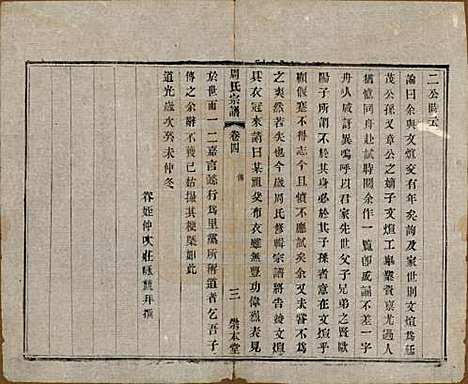 二公時云
論曰余與文煊交有年矣詢及家世則文煊為
茂公孫又章公之嫡子文煊工舉業資稟尤過人
猶憶同赴試時閱余作一覽即成誦不差一字
舟人咸訝異嗚呼以君家先世父子兄弟之賢歐
陽子所謂不於其身必於其子孫者意在文煊乎
顧偃蹇不得志今且慎不應試矣余又未嘗不為
之爽然若失也今歲周氏修輯宗譜將告竣文煊
具衣冠來請曰某祖父布衣雖無豐功偉烈表見
於世而一二嘉言懿行為里黨所稱道者乞吾子
傳之余辭不已姑撮其梗槩如此
道光歲次癸未仲冬
眷姪仲吹莊詠龍拜撰
周氏宗譜
卷四
傳
三
敦本堂